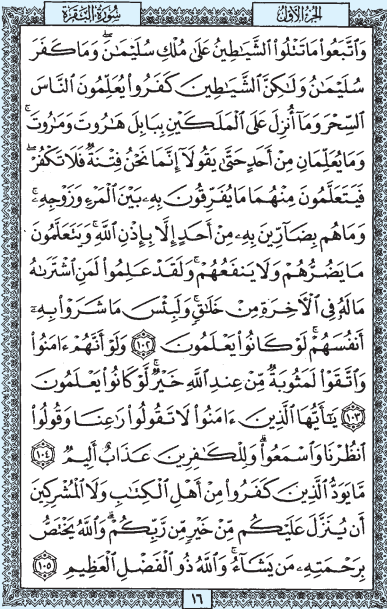 سُورَةُ البَقَرَةِ
الجُزْءُ الأَوَّلُ
وَاتَّبَعُوا مَا تَتْلُوا الشَّيَاطِينُ عَلَىٰ مُلْكِ سُلَيْمَـٰنَ ۖ وَمَا كَفَرَ
سُلَيْمَـٰنُ وَلَـٰكِنَّ الشَّيَـٰطِينَ كَفَرُوا يُعَلِّمُونَ النَّاسَ
السِّحْرَ وَمَا أُنزِلَ عَلَى الْمَلَكَيْنِ بِبَابِلَ هَـٰرُوتَ وَمَـٰرُوتَ ۚ
وَمَا يُعَلِّمَانِ مِنْ أَحَدٍ حَتَّىٰ يَقُولَا إِنَّمَا نَحْنُ فِتْنَةٌ فَلَا تَكْفُرْ ۖ
فَيَتَعَلَّمُونَ مِنْهُمَا مَا يُفَرِّقُونَ بِهِ بَيْنَ الْمَرْءِ وَزَوْجِهِ ۚ
وَمَا هُم بِضَارِّينَ بِهِ مِنْ أَحَدٍ إِلَّا بِإِذْنِ اللَّهِ ۚ وَيَتَعَلَّمُونَ
مَا يَضُرُّهُمْ وَلَا يَنفَعُهُمْ ۚ وَلَقَدْ عَلِمُوا لَمَنِ اشْتَرَىٰهُ
مَا لَهُ فِي الْآخِرَةِ مِنْ خَلَـٰقٍ ۚ وَلَبِئْسَ مَا شَرَوْا بِهِ
أَنفُسَهُمْ ۚ لَوْ كَانُوا يَعْلَمُونَ ١٠٢ وَلَوْ أَنَّهُمْ ءَامَنُوا
وَاتَّقَوْا لَمَثُوبَةٌ مِّنْ عِندِ اللَّهِ خَيْرٌ ۖ لَّوْ كَانُوا يَعْلَمُونَ
١٠٣ يَـٰأَيُّهَا الَّذِينَ ءَامَنُوا لَا تَقُولُوا رَٰعِنَا وَقُولُوا
انظُرْنَا وَاسْمَعُوا ۗ وَلِلْكَـٰفِرِينَ عَذَابٌ أَلِيمٌ ١٠٤
مَّا يَوَدُّ الَّذِينَ كَفَرُوا مِنْ أَهْلِ الْكِتَـٰبِ وَلَا الْمُشْرِكِينَ
أَن يُنَزَّلَ عَلَيْكُم مِّنْ خَيْرٍ مِّن رَّبِّكُمْ ۗ وَاللَّهُ يَخْتَصُّ
بِرَحْمَتِهِ مَن يَشَاءُ ۚ وَاللَّهُ ذُو الْفَضْلِ الْعَظِيمِ ١٠٥
١٦